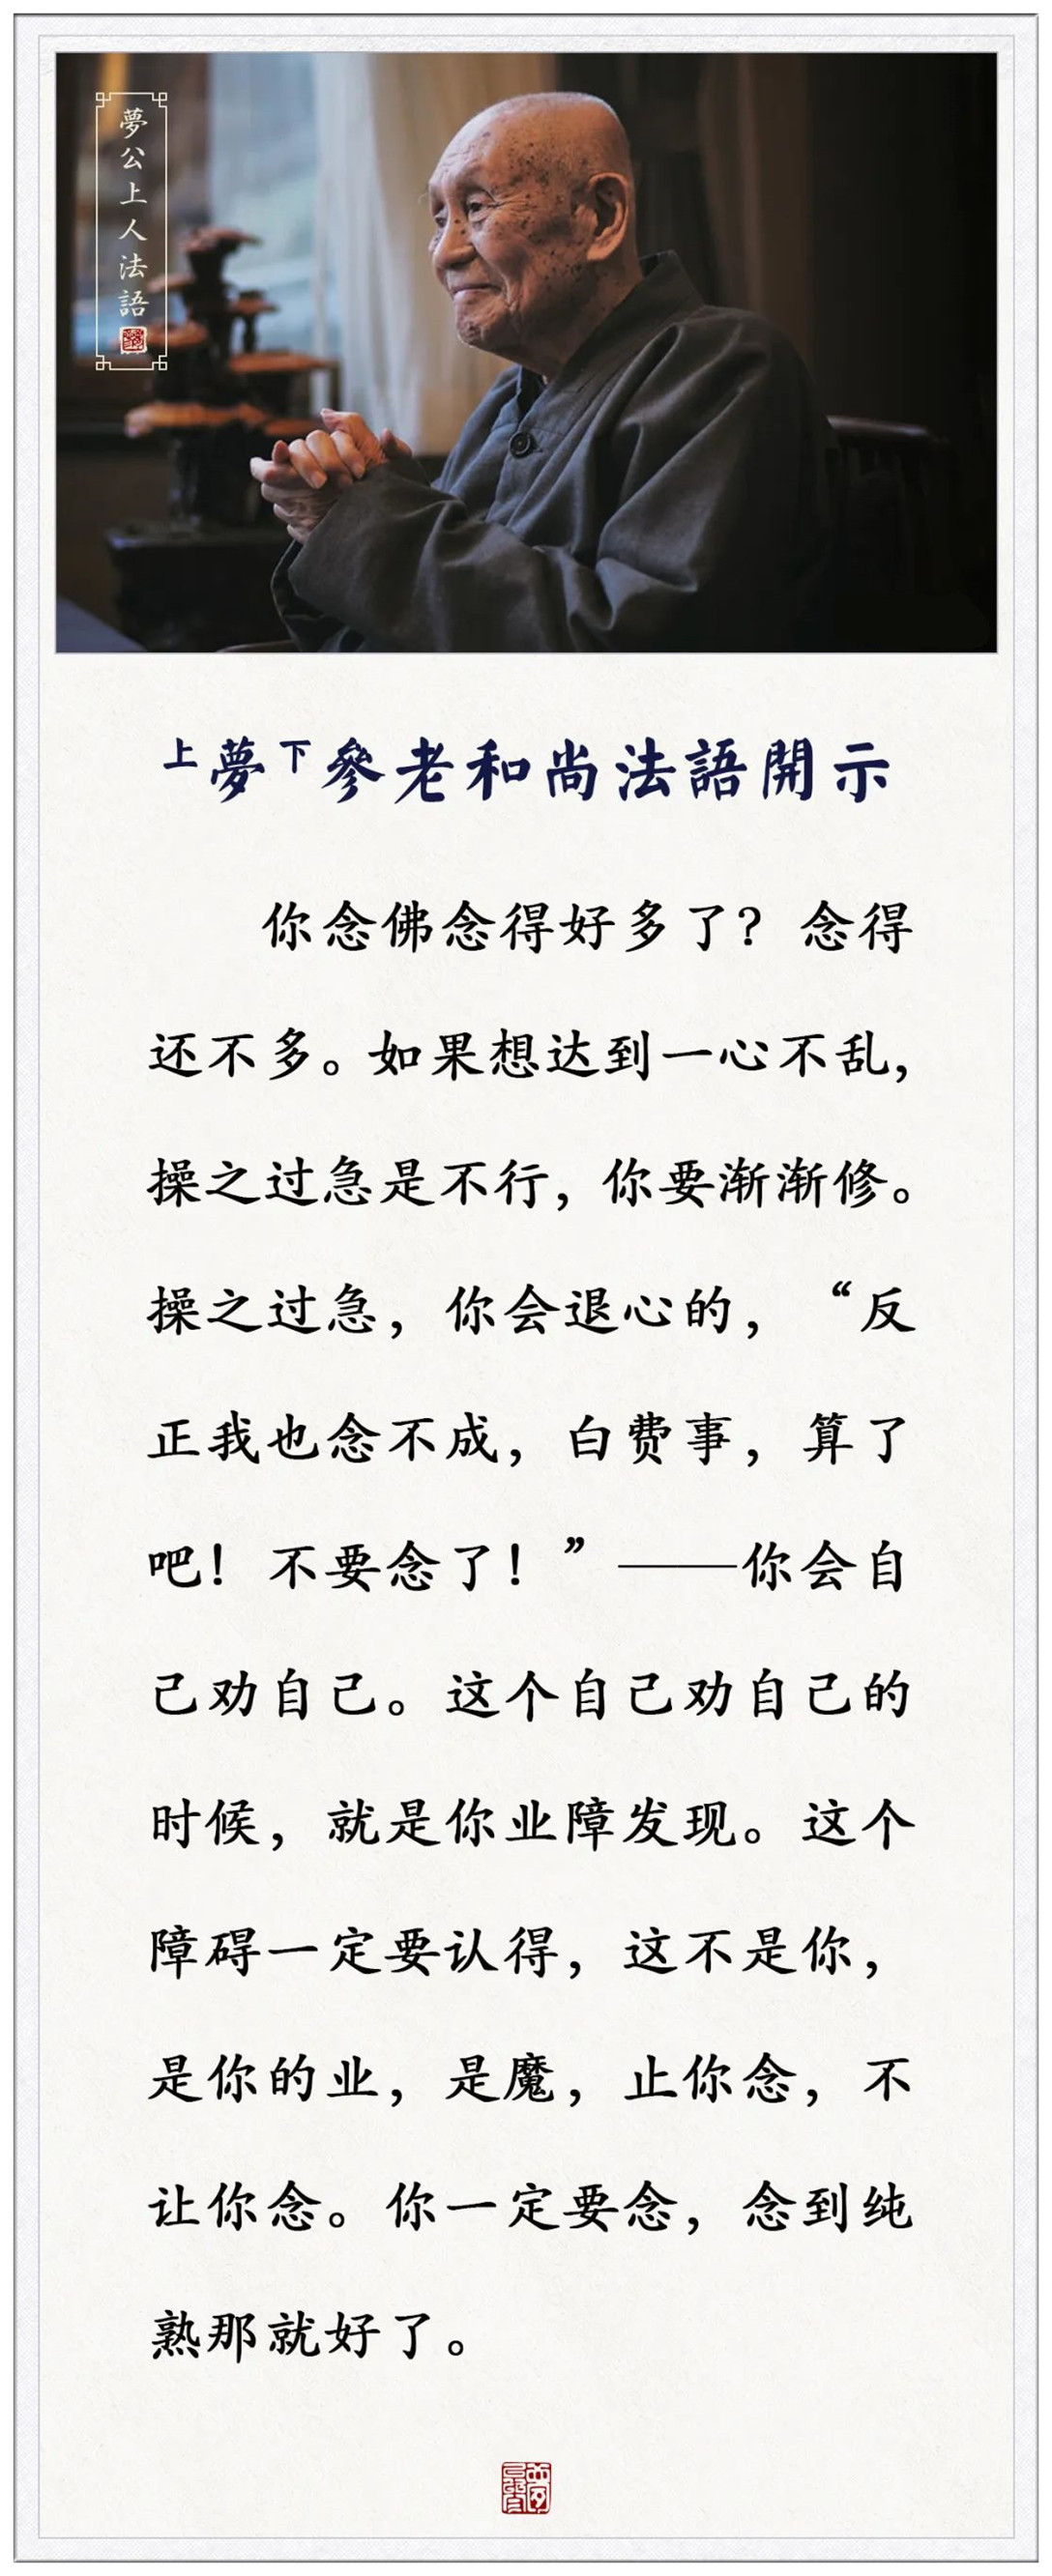 夢公上人法語
上夢下參老和尚法語開示
你念佛念得好多了？念得
还不多。如果想达到一心不乱，
操之过急是不行，你要渐渐修。
操之过急，你会退心的，“反
正我也念不成，白费事，算了
吧！不要念了！”——你会自
己劝自己。这个自己劝自己的
时候，就是你业障发现。这个
障碍一定要认得，这不是你，
是你的业，是魔，止你念，不
让你念。你一定要念，念到纯
熟那就好了。